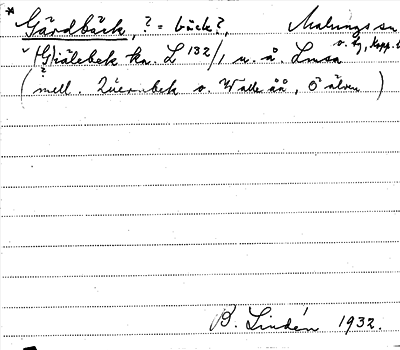 * Gärdbäck, ? = bäck?, Malungs sn
v. fg, Kopp. l
(G)iälebek ka. L 132/1 u. å. Lmsa
(mell. Züernbek o. Walle åå, Ö älven)
B. Lindén 1932.